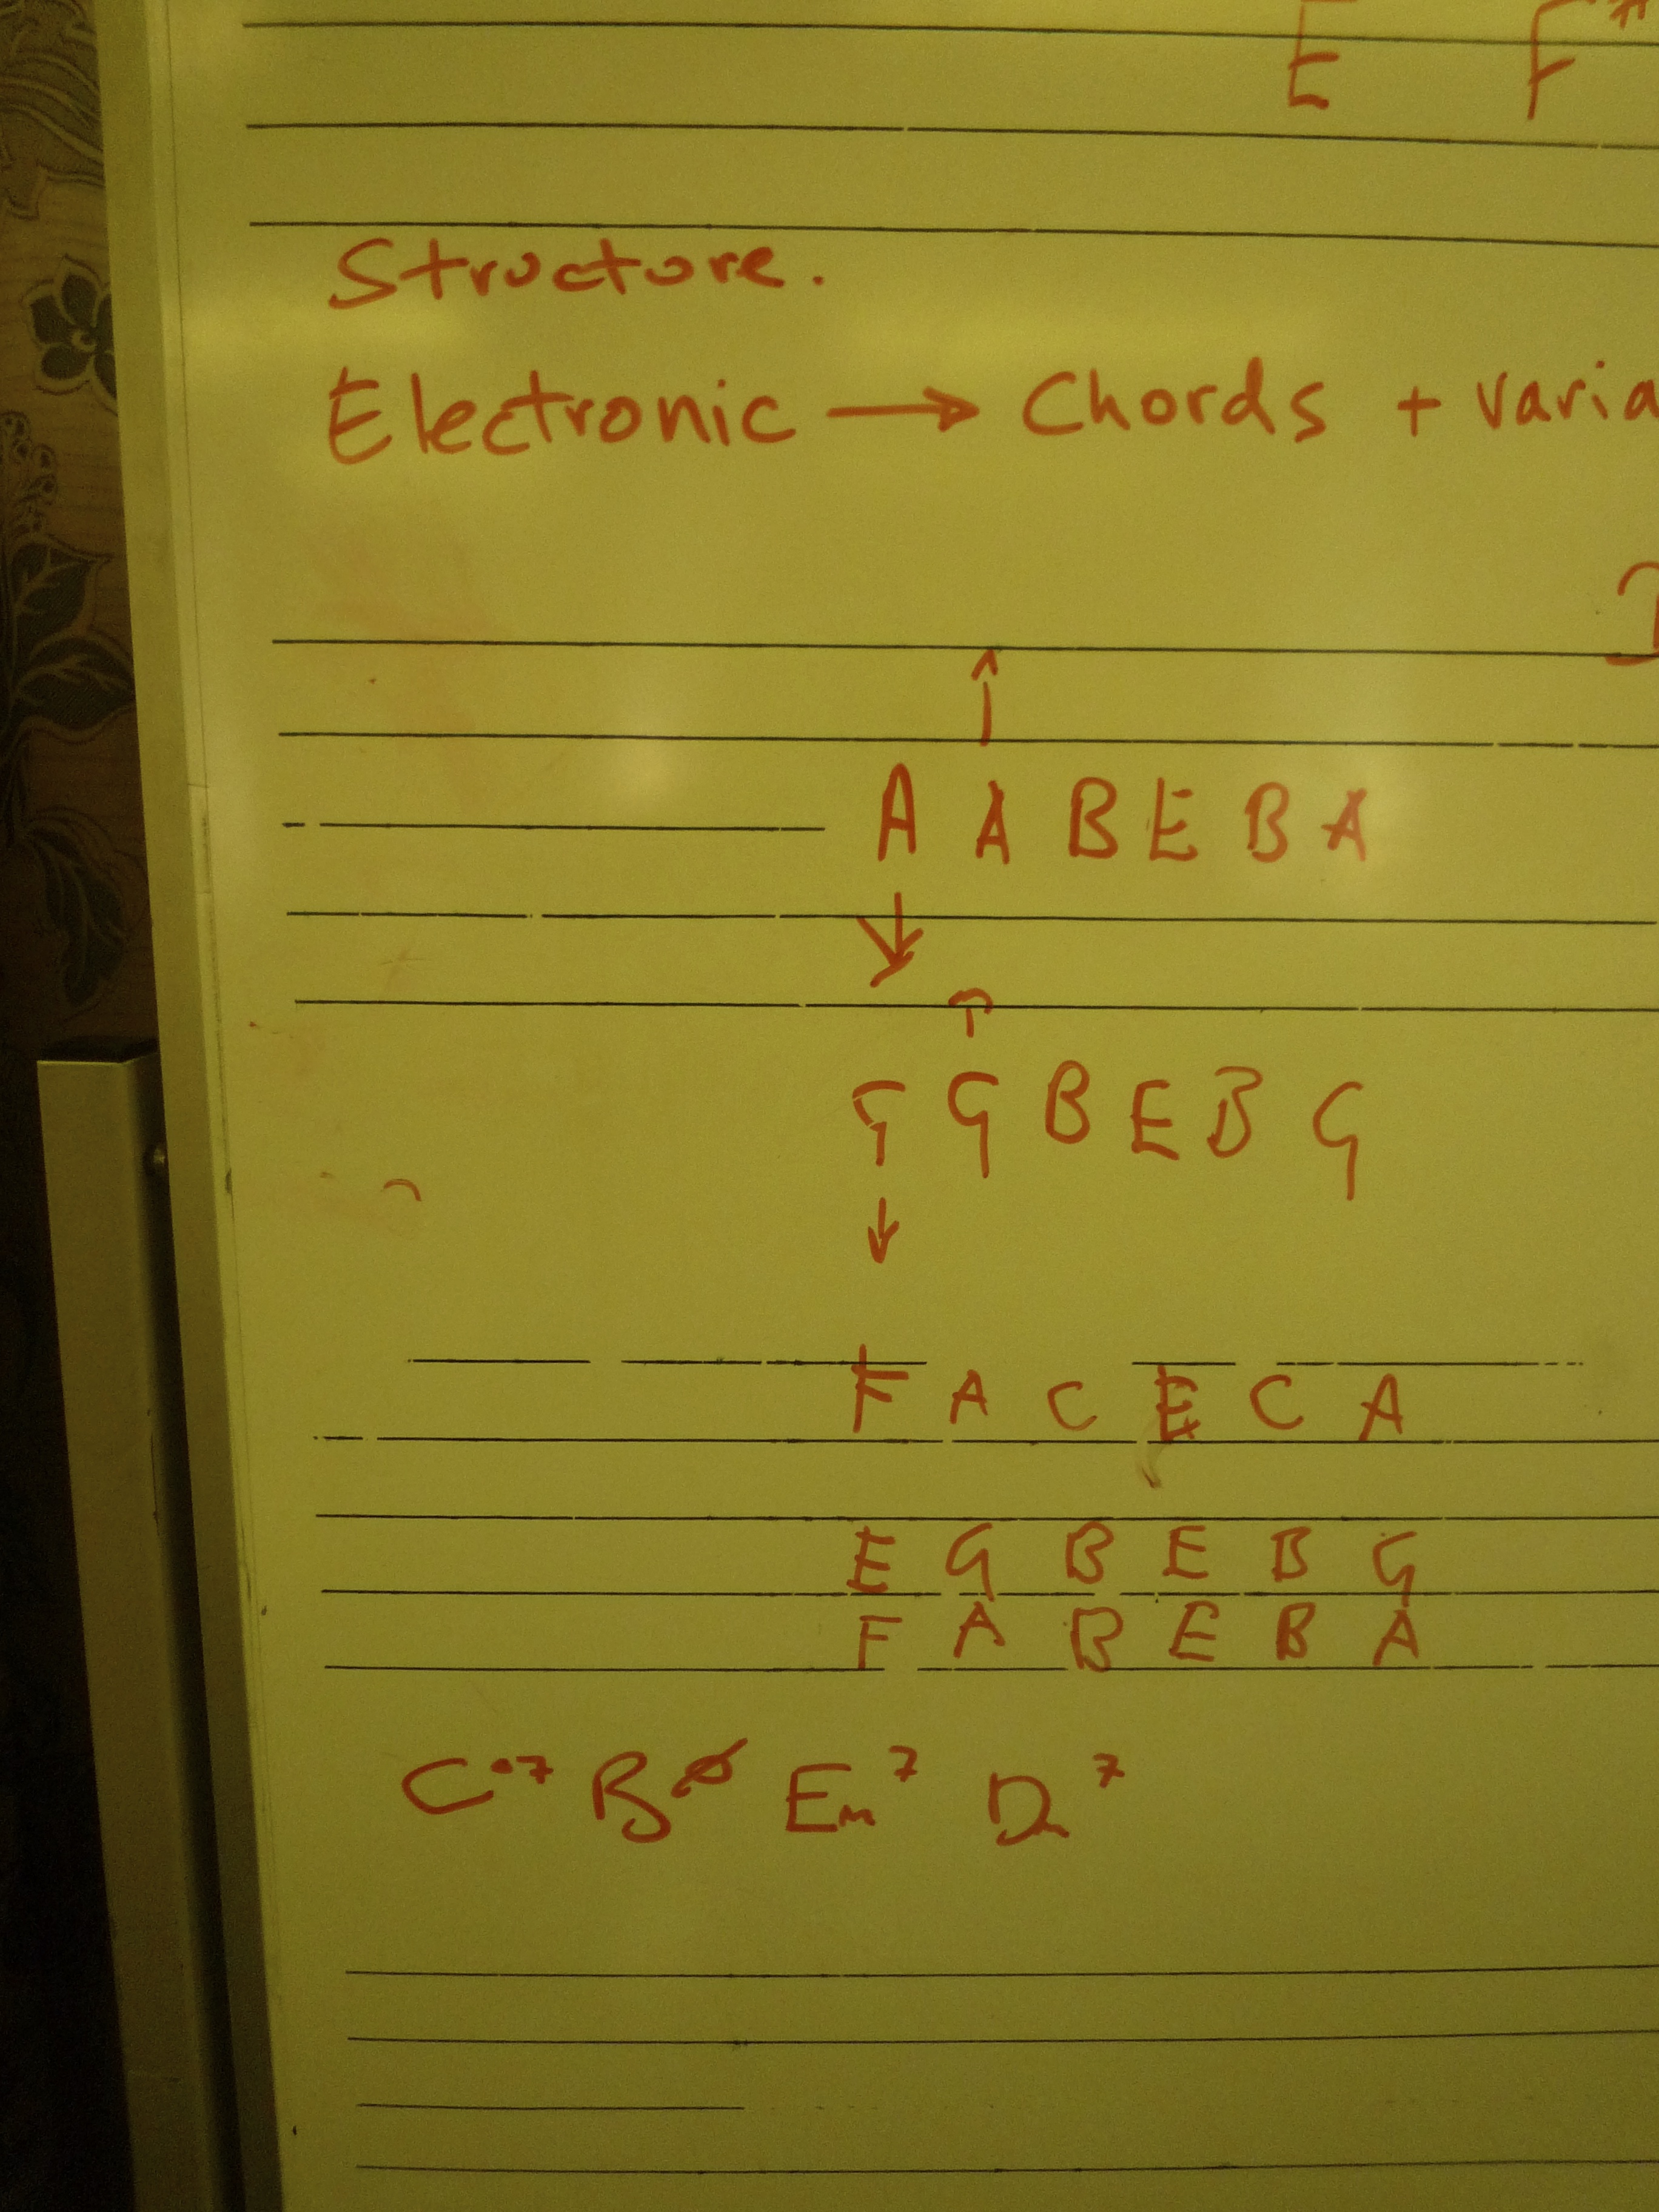 E F#
Structure.
Electronic → Chords + varia
↑
A A B E B A
↓ ↑
G G B E B G
↓
F A C E C A
E G B E B G
F A B E B A
C°7 Bø Em7 Dm7